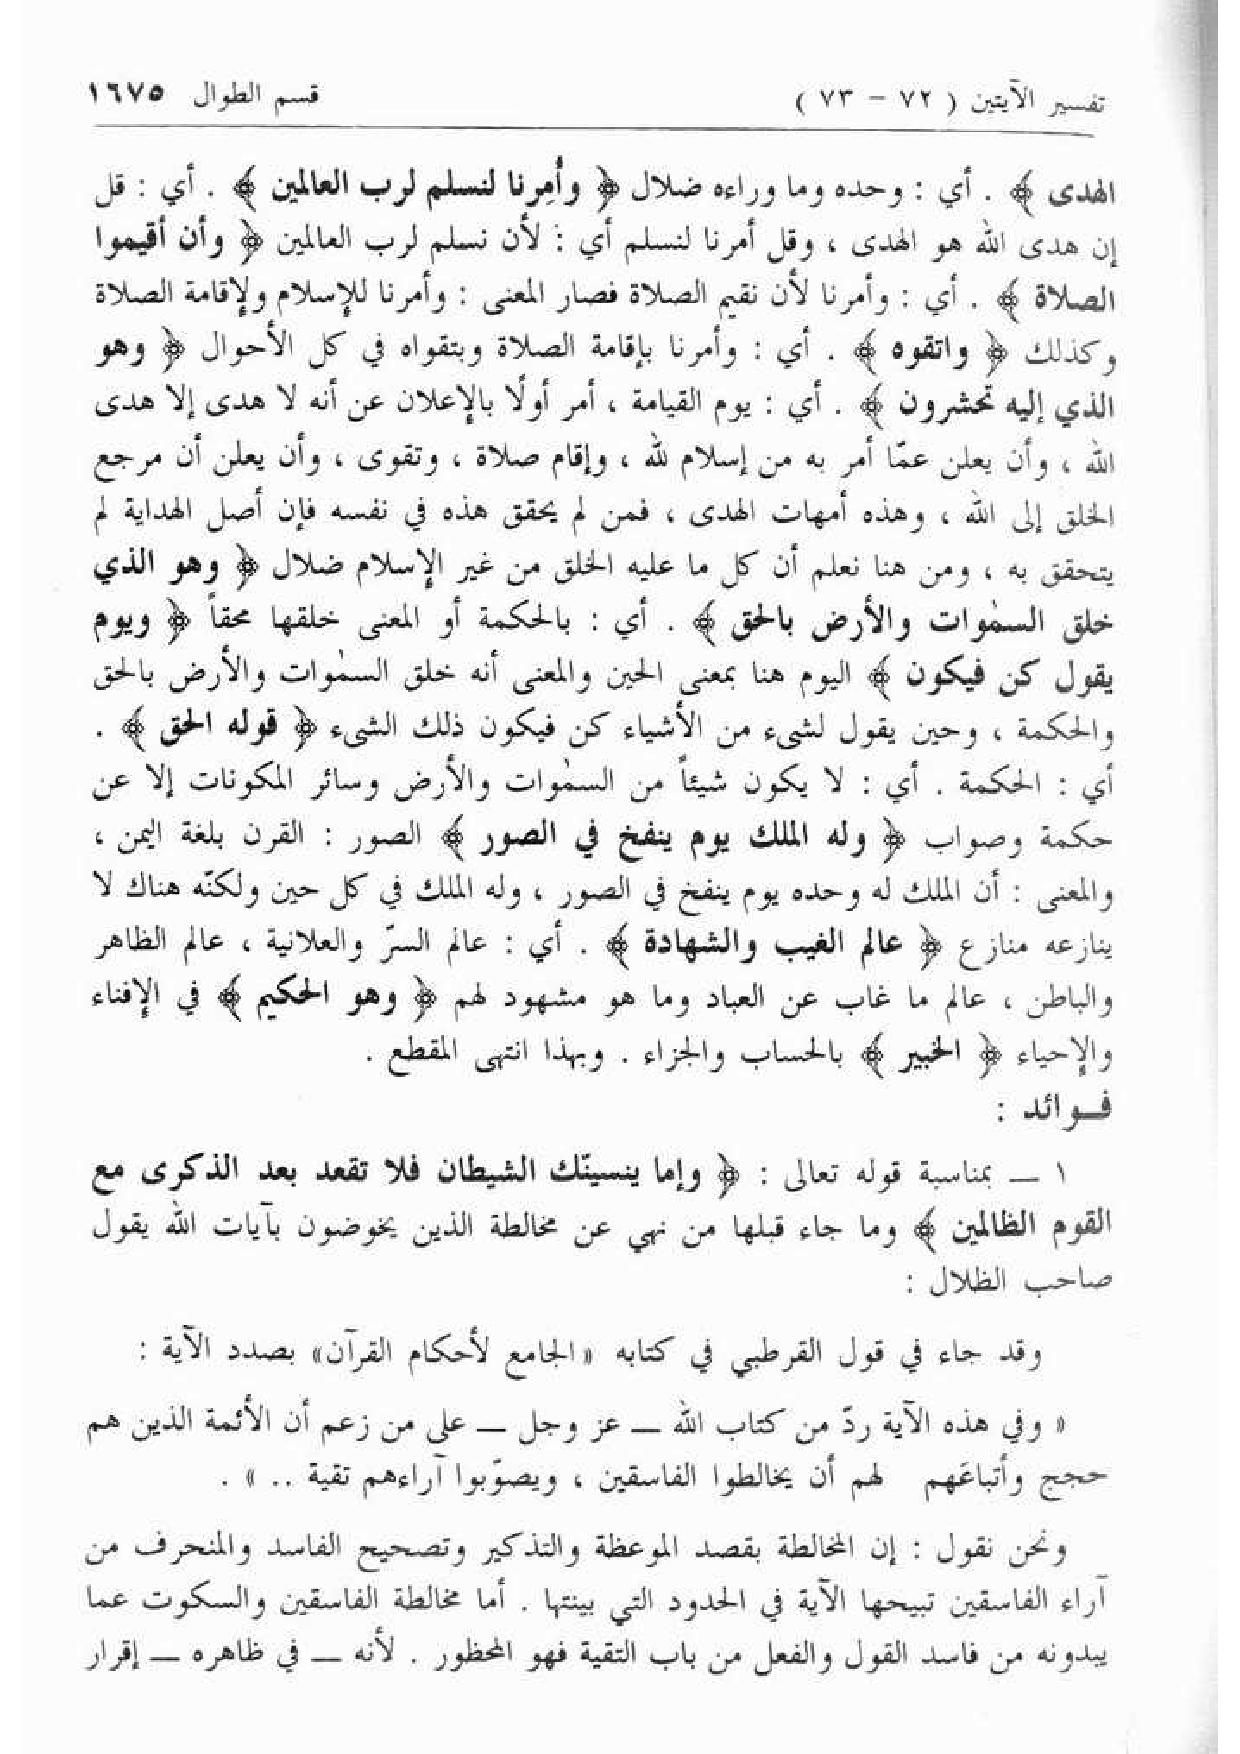 تفسير الآيتين ( ٧٢ – ٧٣ )
قسم الطوال ١٦٧٥
الهدى ﴾ . أي : وحده وما وراءه ضلال ﴿ وأُمِرنا لنسلم لرب العالمين ﴾ . أي : قل
إن هدى الله هو الهدى ، وقل أمرنا لنسلم أي : لأن نسلم لرب العالمين ﴿ وأن أقيموا
الصلاة ﴾ . أي : وأمرنا لأن نقيم الصلاة فصار المعنى : وأمرنا للإسلام ولإقامة الصلاة
وكذلك ﴿ واتقوه ﴾ . أي : وأمرنا بإقامة الصلاة وبتقواه في كل الأحوال ﴿ وهو
الذي إليه تحشرون ﴾ . أي : يوم القيامة ، أمر أولًا بالإعلان عن أنه لا هدى إلا هدى
الله ، وأن يعلن عمّا أمر به من إسلام لله ، وإقام صلاة ، وتقوى ، وأن يعلن أن مرجع
الخلق إلى الله ، وهذه أمهات الهدى ، فمن لم يحقق هذه في نفسه فإن أصل الهداية لم
يتحقق به ، ومن هنا نعلم أن كل ما عليه الخلق من غير الإسلام ضلال ﴿ وهو الذي
خلق السمٰوات والأرض بالحق ﴾ . أي : بالحكمة أو المعنى خلقها محقاً ﴿ ويوم
يقول كن فيكون ﴾ اليوم هنا بمعنى الحين والمعنى أنه خلق السمٰوات والأرض بالحق
والحكمة ، وحين يقول لشيء من الأشياء كن فيكون ذلك الشيء ﴿ قوله الحق ﴾ .
أي : الحكمة . أي : لا يكون شيئاً من السمٰوات والأرض وسائر المكونات إلا عن
حكمة وصواب ﴿ وله الملك يوم ينفخ في الصور ﴾ الصور : القرن بلغة اليمن ،
والمعنى : أن الملك له وحده يوم ينفخ في الصور ، وله الملك في كل حين ولكنّه هناك لا
ينازعه منازع ﴿ عالم الغيب والشهادة ﴾ . أي : عالم السرّ والعلانية ، عالم الظاهر
والباطن ، عالم ما غاب عن العباد وما هو مشهود لهم ﴿ وهو الحكيم ﴾ في الإفناء
والإحياء ﴿ الخبير ﴾ بالحساب والجزاء . وبهذا انتهى المقطع .
فـوائد :
١ — بمناسبة قوله تعالى : ﴿ وإما ينسينّك الشيطان فلا تقعد بعد الذكرى مع
القوم الظالمين ﴾ وما جاء قبلها من نهي عن مخالطة الذين يخوضون بآيات الله يقول
صاحب الظلال :
وقد جاء في قول القرطبي في كتابه «الجامع لأحكام القرآن» بصدد الآية :
« وفي هذه الآية ردّ من كتاب الله — عز وجل — على من زعم أن الأئمة الذين هم
حجج وأتباعَهم لهم أن يخالطوا الفاسقين ، ويصوّبوا آراءهم تقية .. » .
ونحن نقول : إن المخالطة بقصد الموعظة والتذكير وتصحيح الفاسد والمنحرف من
آراء الفاسقين تبيحها الآية في الحدود التي بينتها . أما مخالطة الفاسقين والسكوت عما
يبدونه من فاسد القول والفعل من باب التقية فهو المحظور . لأنه — في ظاهره — إقرار